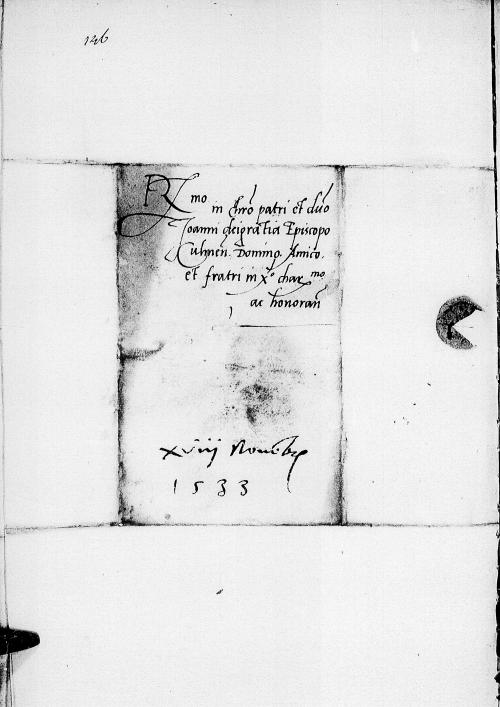 126
R mo in chro patri et dno
Joanni dei gratia Episcopo
Culmen. Domino, Amico,
et fratri in X° char mo
ac honoran
xviij Novembr
1533